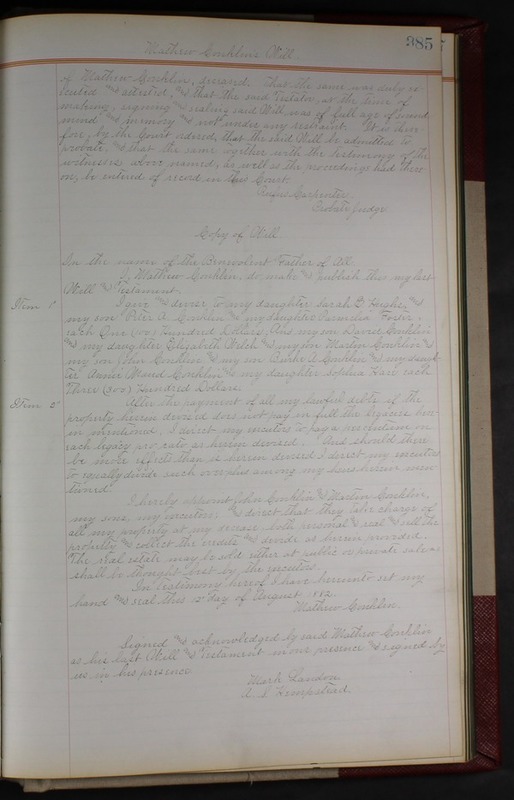 385
Mathew Conklin's Will.
of Mathew Conklin, deceased. That the same was duly ex-
ecuted and attested, and that the said Testator, at the time of
making, signing and sealing said Will was of full age of sound
mind and memory and not under any restraint. It is there
fore, by the Court ordered, that the said Will be admitted to
probate, and that the same together with the testimony of the
witnesses above named, as well as the proceedings had there
on, be entered of record in this Court.
Rufus Carpenter
Probate Judge
Copy of Will.
In the name of the Benevolent Father of All:
I, Mathew Conklin, do make and publish this my last
Will and Testament.
Item 1st I give and devise to my daughter Sarah and
my son Peter A. Conklin and my daughter Permelia Foster
each One (100) Hundred Dollars, And my son David Conklin
and my daughter Elizabeth Welch and my son Martin Conklin and
my son John Conklin and my son A Conklin and my daugh
ter Annie Conklin and my daughter Sophia each
Three (300) Hundred Dollars.
Item 2d After the payment of all my lawful debts if the
property herein devised does not pay in full the legacies here
in mentioned, I direct my executors to pay a reduction on
each legacy pro rata as herein devised. And should there
be more effects than is herein devised I direct my executors
to equally divide such overplus among my heirs herein men
tioned.
I hereby appoint John Conklin and Martin Conklin,
my sons, my executors; and direct that they take charge of
all my property at my decease both personal and real and sell the
property and collect the credits and divide as herein provided.
The real estate may be sold either at public or private sale as
shall be thought best by the executors.
In Testimony hereof I have hereunto set my
hand and seal this 2d day of August 1882.
Mathew Conklin.
Signed and acknowledged by said Mathew Conklin
as his last Will and Testament in our presence and signed by
us in his presence.
Mark Landon
A. S. Hempstead.